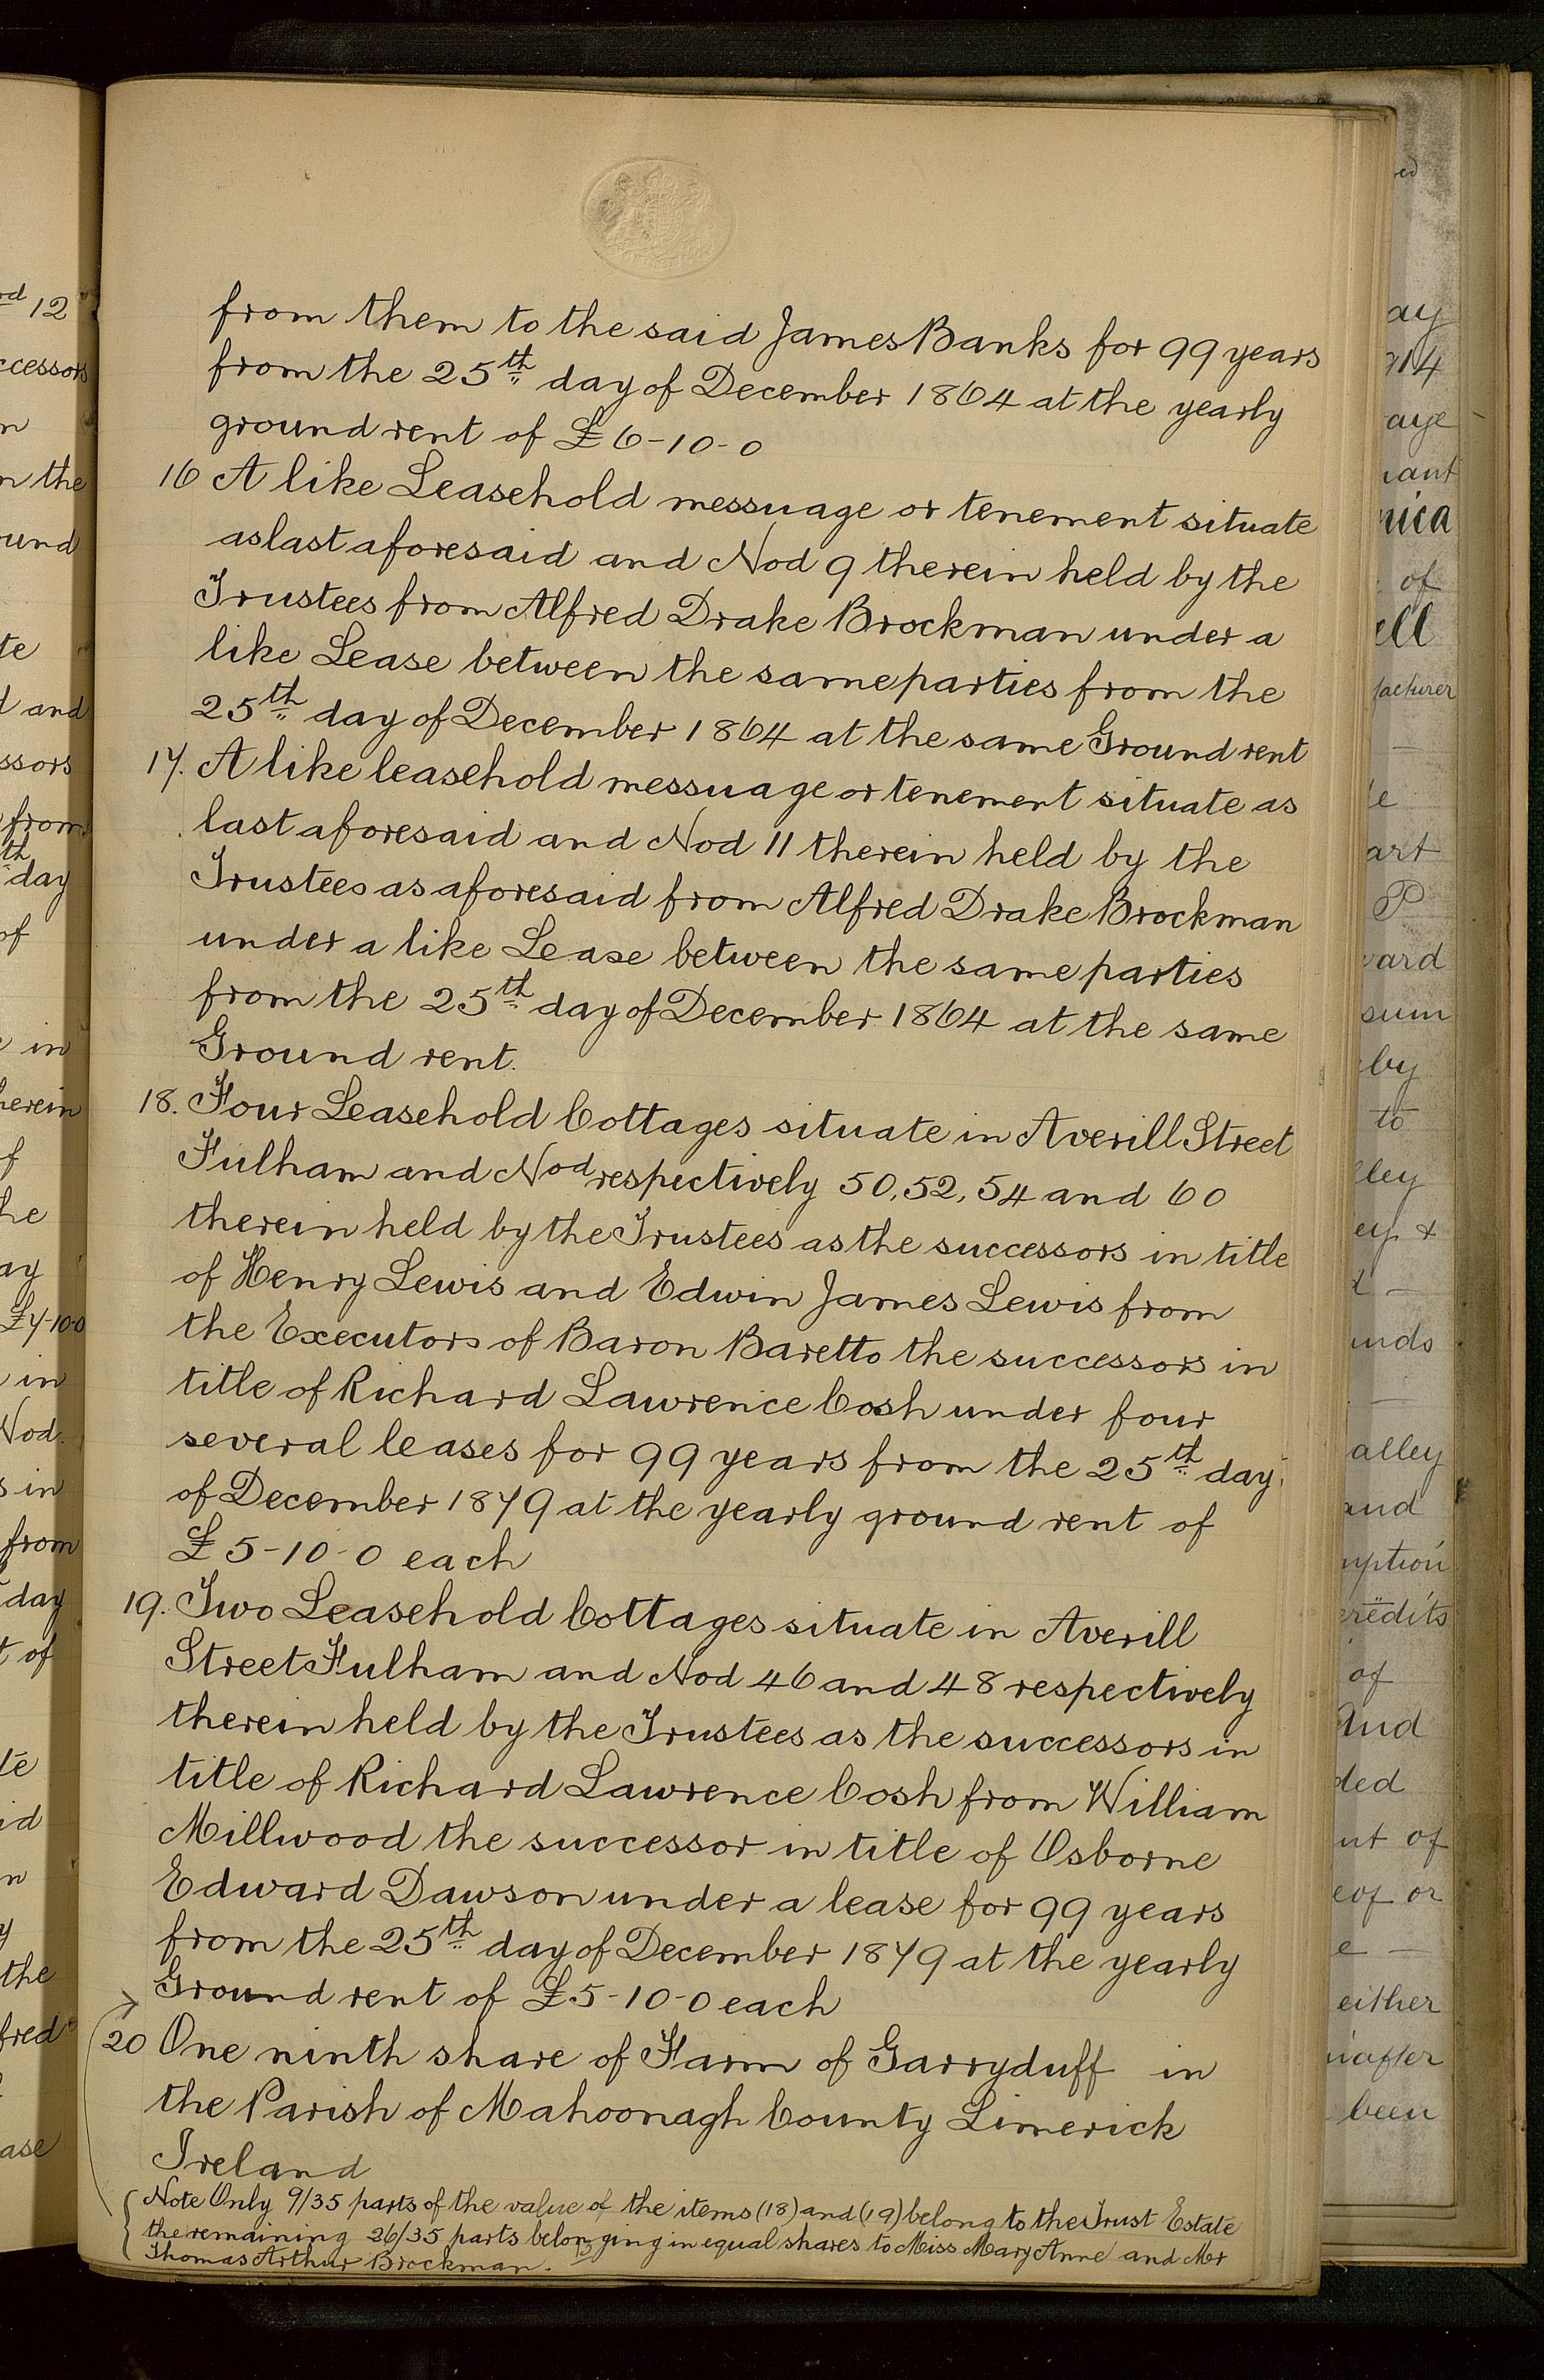 from them to the said James Banks for 99 years
from the 25th day of December 1864 at the yearly
ground rent of £6-10-0
16 A like Leasehold messuage or tenement situate
as last aforesaid and Nod 9 therein held by the
Trustees from Alfred Drake Brockman under a
like Lease between the same parties from the
25th day of December 1864 at the same Ground rent
17. A like leasehold messuage or tenement situate as
last aforesaid and Nod 11 therein held by the
Trustees as aforesaid from Alfred Drake Brockman
under a like Lease between the same parties
from the 25th day of December 1864 at the same
Ground rent.
18. Four Leasehold Cottages situate in Averill Street
Fulham and Nod respectively 50, 52, 54 and 60
therein held by the Trustees as the successors in title
of Henry Lewis and Edwin James Lewis from
the Executors of Baron Baretto the successors in
title of Richard Lawrence Cosh under four
several leases for 99 years from the 25th day
of December 1879 at the yearly ground rent of
£5-10-0 each
19. Two Leasehold Cottages situate in Averill
Street Fulham and Nod 46 and 48 respectively
therein held by the Trustees as the successors in
title of Richard Lawrence Cosh from William
Millwood the successor in title of Osborne
Edward Dawson under a lease for 99 years
from the 25th day of December 1879 at the yearly
Ground rent of £5-10-0 each
20 One ninth share of Farm of Garryduff in
the Parish of Mahoonagh County Limerick
Ireland
Note Only 9/35 parts of the value of the items (18) and (19) belong to the Trust Estate
the remaining 26/35 parts belonging in equal shares to Miss Mary Anne and Mr
Thomas Arthur Brockman.